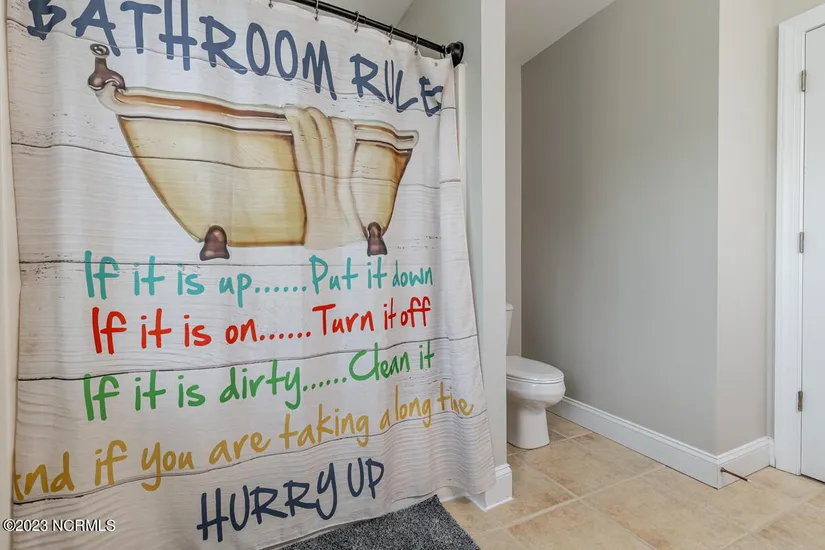 BATHROOM RULES
If it is up......Put it down
If it is on......Turn it off
If it is dirty......Clean it
And if you are taking a long time
HURRY UP
©2023 NCRMLS